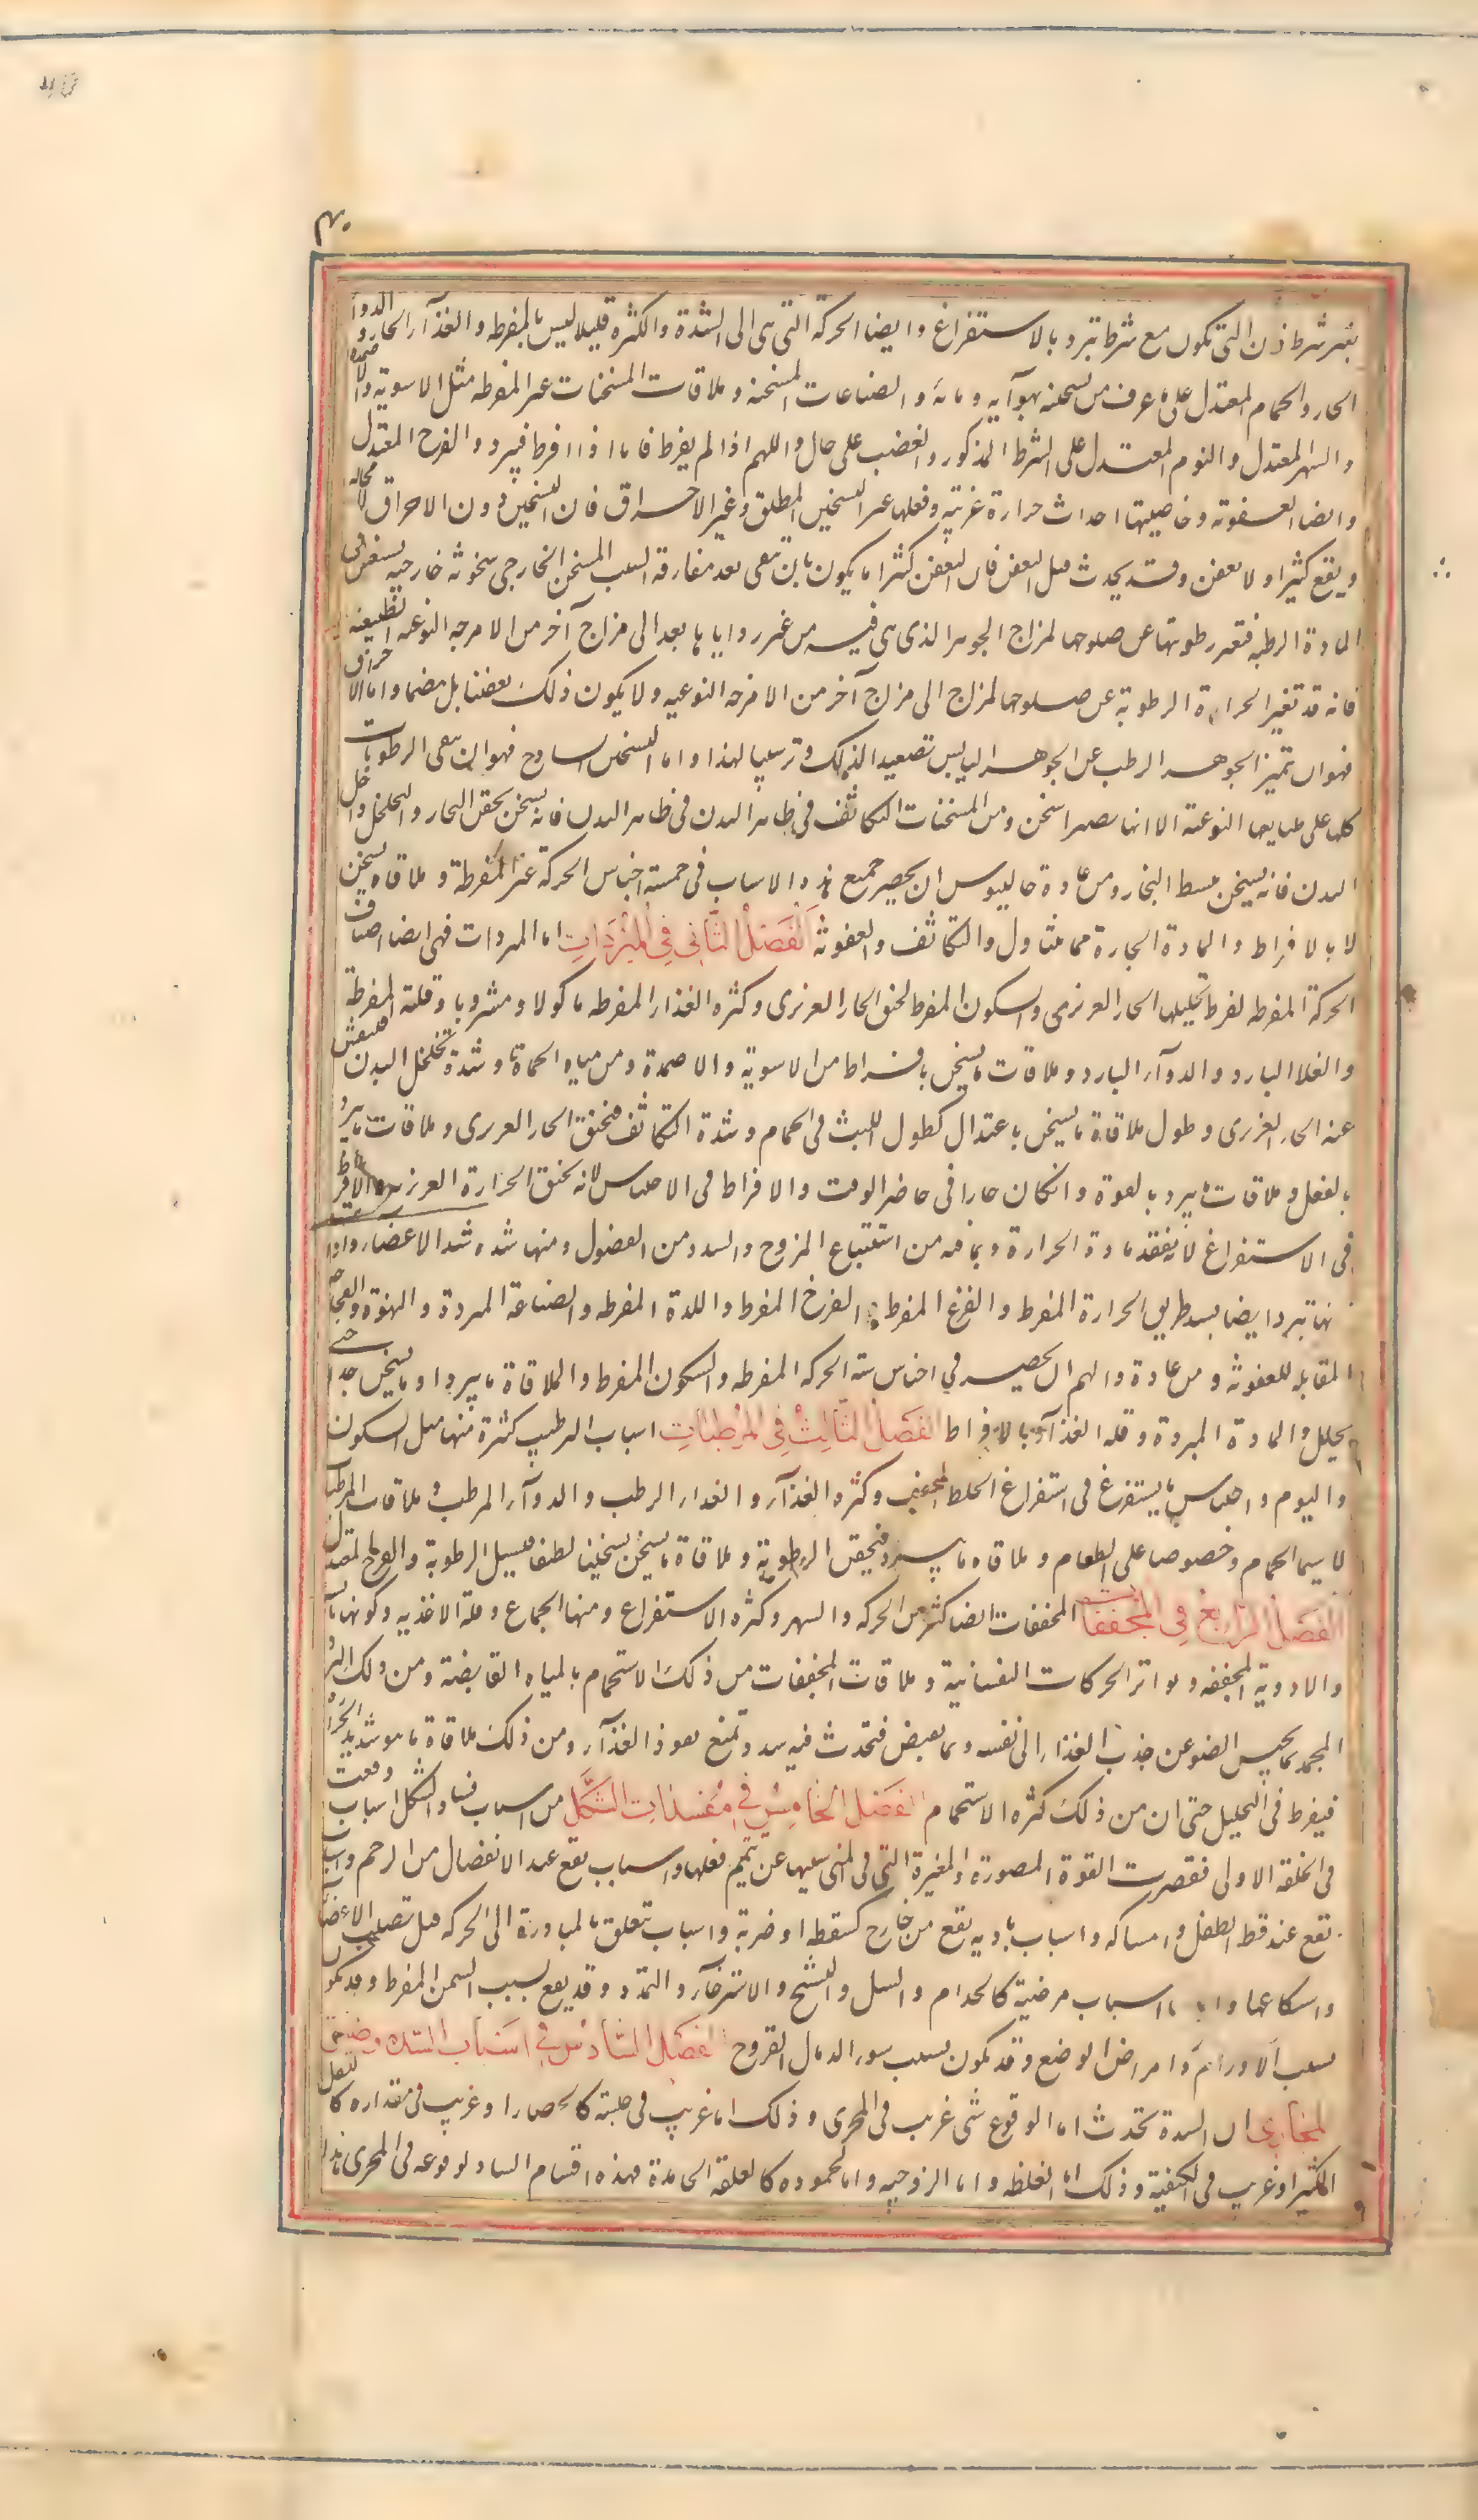 ۴۰
بغير شرط ذن التى تكون مع شرط تبرد بالاستفراغ وايضا الحركة التى هى الى الشدة والكثرة قليلا ليس بالمفرط والغذآء الحار والدوآ
الحار والحمام المعتدل على ما عرف من تسخينه بهوآيه ومائه والصناعات المسخنة وملاقات المسخنات غير المفرطه مثل الاهوية والاضمدة
والسهر المعتدل والنوم المعتدل على الشرط المذكور والغضب على حال والهم اذا لم يفرط فاما اذا افرط فيبرد والفرح المعتدل
وايضا العفونه وخاصيتها احداث حرارة غريبه وفعلها غير التسخين المطلق وغير الاحراق فان التسخين دون الاحراق لا محاله
ويقع كثيرا ولا يعفن وقد يحدث قبل العفن فان العفن كثيرا ما يكون بان تبقى بعد مفارقة السبب المسخن الخارجى سخونة خارجيه
المادة الرطبه فتغير رطوبتها عن صلوحها لمزاج الجوهر الذى هى فيه من غير رد اياها بعد الى مزاج آخر من الامزجه النوعيه الطبيعيه
فانه قد تغير الحرارة الرطوبة عن صلوحها لمزاج الى مزاج آخر من الامزجه النوعيه ولا يكون ذلك تعفنا بل هضما واما الاحراق
فهو ان تميز الجوهر الرطب عن الجوهر اليابس تصعيدا لذلك وترسيبا لهذا واما التسخين الساذج فهو ان تبقى الرطوبات
كلها على طبايعها النوعيه الا انها تصير اسخن ومن المسخنات التكاثف فى ظاهر البدن فى ظاهر البدن فانه يسخن بحقن البخار والتخلخل داخل
البدن فانه يسخن ببسط البخار ومن عادة جالينوس ان يحصر جميع هذه الاسباب فى خمسة اجناس الحركة غير المفرطة وملاقاة ما يسخن
لا بالافراط والمادة الحارة مما يتناول والتكاثف والعفونة الفَصْلُ الثَّانِى فِى المُبَرِّدَاتِ اما المبردات فهى ايضا اصناف
الحركة المفرطه لفرط تحليلها الحار الغريزى والسكون المفرط لخنق الحار الغريزى وكثرة الغذاء المفرطه ماكولا ومشروبا وقلته المفرطة
والغذا البارد والدوآء البارد وملاقات ما يسخن بافراط من الاهوية والاضمدة ومن مياه الحماة وشدة تخلخل البدن فينفش
عنه الحار الغريزى وطول ملاقاة ما يسخن باعتدال كطول اللبث فى الحمام وشدة التكاثف فيخنق الحار الغريزى وملاقات ما يبرد
بالفعل وملاقات ما يبرد بالقوة وان كان حارا فى حاضر الوقت والافراط فى الاحتباس لانه يخنق الحرارة الغريزيه والافراط
فى الاستفراغ لما يفقد مادة الحرارة وبما فيه من استتباع الروح والسدد من الفضول ومنها شدة شد الاعضاء وادا
نها تبرد ايضا بسد طريق الحرارة المفرط والفزع المفرط والفرح المفرط واللذة المفرطه والصناعة المبردة والنهوة والفجاجه
المقابله للعفونة ومن عادة دالهم ان يحصر فى اجناس ستة الحركه المفرطه والسكون المفرط والملاقاة ما يبرد او ما يسخن جدا حتى
يحلل والمادة المبردة وقلة الغذآء بالافراط الفَصْلُ الثَّالِثُ فِى المُرَطِّبَاتِ اسباب الترطيب كثيرة منها مثل السكون
والنوم واحتباس ما يستفرغ فى استفراغ الخلط المجفف وكثرة الغذآء والغداء الرطب والدوآء المرطب وملاقات المرطبا
لا سيما الحمام وخصوصا على الطعام وملاقاة ما يبرد فيحقن الرطوبة وملاقاة ما يسخن تسخينا لطفا فيسيل الرطوبة والفرح المعتدل
الفَصْلُ الرَّابِعُ فِى المُجَفِّفَاتِ المجففات ايضا كثيرة مثل الحركه والسهر وكثرة الاستفراغ ومنها الجماع وقلة الاغذيه وكونها يابسه
والادوية المجففه وتواتر الحركات النفسانية وملاقات المجففات من ذلك الاستحمام بالمياه القابضة ومن ذلك البرد
المجمد بما يحبس العضو عن جذب الغذاء الى نفسه وبما يقبض فتحدث فيه سدد تمنع نفوذ الغذآء ومن ذلك ملاقاة ما هو شديد الحرارة
فيفرط فى التحليل حتى ان من ذلك كثرة الاستحمام الفَصْلُ الخَامِسُ فِى مُفْسِدَاتِ الشَّكْلِ من اسباب فساد الشكل اسباب وقعت
فى الخلقه الاولى فقصرت القوة المصورة او المغيرة التى فى المنى بسببها عن تتميم فعلها واسباب تقع عند الانفصال من الرحم واسباب
تقع عند قمط الطفل وامساكه واسباب باديه تقع من خارج كسقطه او ضربة واسباب تتعلق بالمبادرة الى الحركه قبل تصلب الاعضا
واستكاعها واما اسباب مرضية كالجذام والسل والتشنج والاسترخآء والتمدد وقد يقع بسبب السمن المفرط وقد يكون
بسبب الاورام وامراض الوضع وقد تكون بسبب سوء اندمال القروح الفَصْلُ السَّادِسُ فِى اَسْبَابِ السُّدَّةِ وضيق
المجارى ان السدة تحدث اما لوقوع شى غريب فى المجرى وذلك اما غريب فى جنسه كالحصاة او غريب فى مقداره كالثفل
الكثير او غريب فى الكيفية وذلك اما لغلظه واما لزوجته واما لجموده كالعلقة الجامدة فهذه اقسام الساد لوقوعه فى المجرى